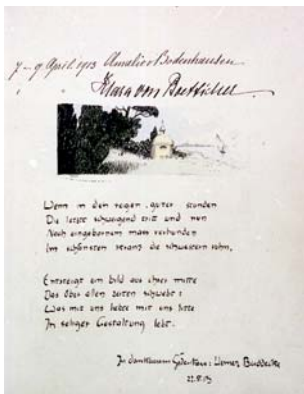 7–9 April 1913 Amalie v Bodenhausen
Klara von Boetticher
Wenn in den reigen guter stunden
Die letzte schweigend tritt und nun
Nach eingebornem mass verbunden
Im schönsten kranz die schwestern ruhn,
Entsteigt ein bild aus ihrer mitte
Das über allen zeiten schwebt:
Was mit uns lebte mit uns litte
In seliger Gestaltung lebt.
In dankbarem Gedenken: Werner
22.9.13